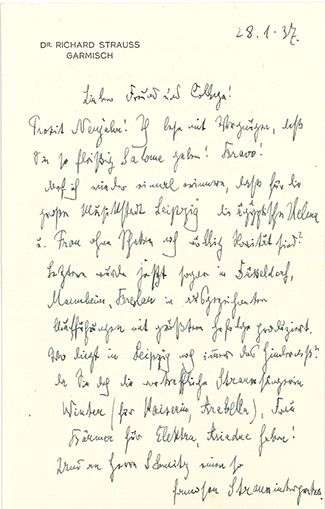 28.1.37.
DR. RICHARD STRAUSS
GARMISCH
Lieber Freund und College!
Prosit Neujahr! Ich lese mit Vergnügen, daß
Sie so fleißig Salome geben! Bravo!
Darf ich wieder einmal erinnern, daß für die
große Musikstadt Leipzig die ägyptische Helena
u. Frau ohne Schatten noch völlig Novität sind?
Letztere wurde jetzt sogar in Düsseldorf,
Mannheim, Breslau in ausgezeichneten
Aufführungen mit größtem Erfolge produziert.
Wo liegt in Leipzig noch immer das Hinderniß?
da Sie doch die vortreffliche Straußsängerin
Winter (für Kaiserin, Arabella), Frau
für Elektra, Ariadne haben!
Und an Herrn Schmitz einen so
famosen Straussinterpreten.